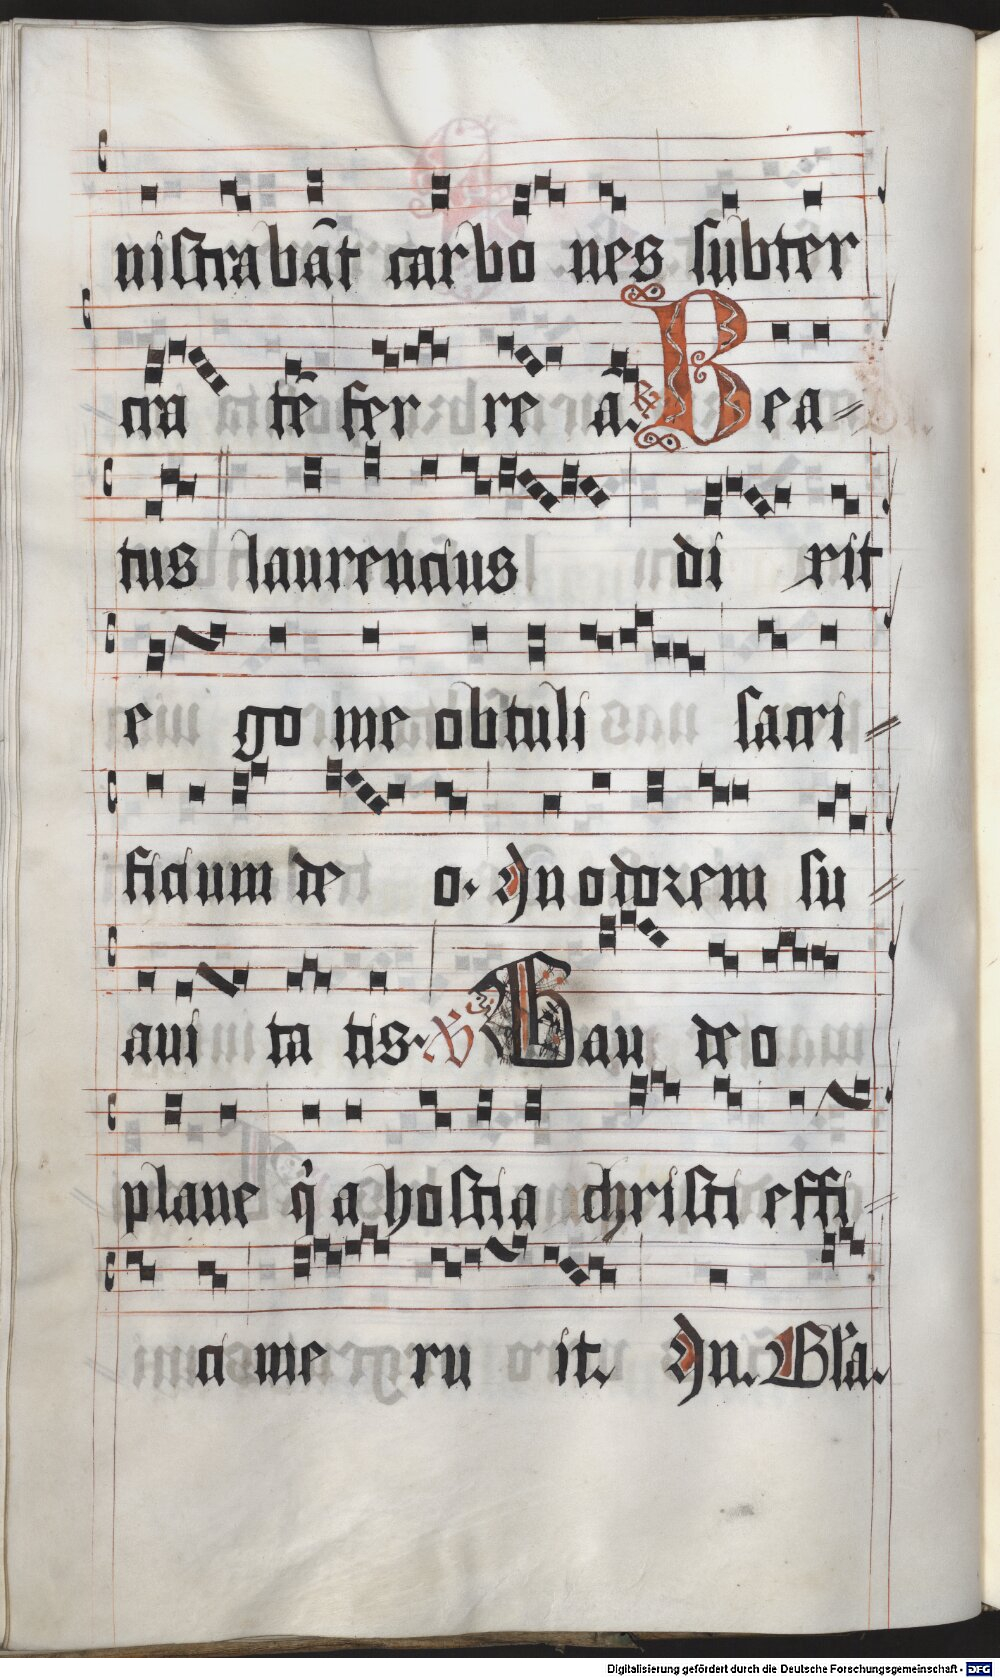 nistrabāt carbo nes subter
cra tē fer re ā. R Bea
tus laurencius di xit
e go me obtuli sacri
ficium de o. In odorem su
aui ta tis. V Gau deo
plane q̄a hostia christi effi
ci me ru it. In. Gła.
Digitalisierung gefördert durch die Deutsche Forschungsgemeinschaft - DFG